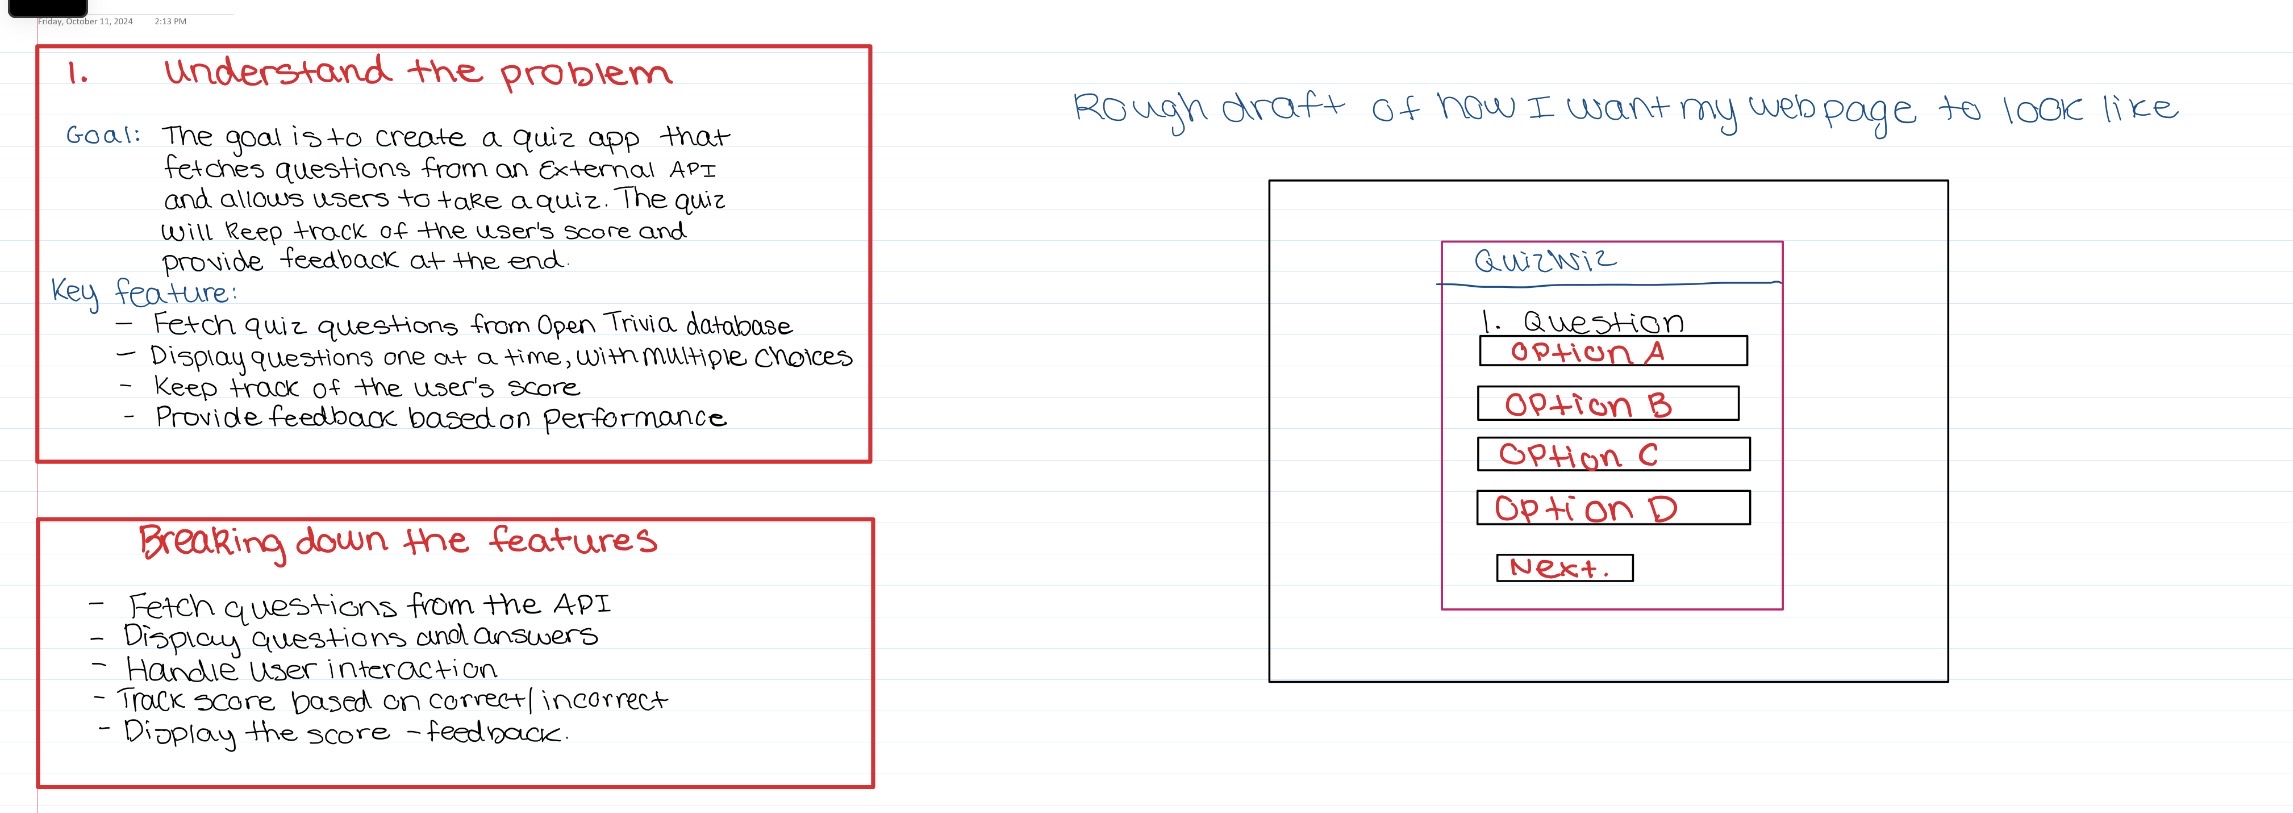 Friday, October 11, 2024 2:13 PM
1. Understand the problem
Goal: The goal is to create a quiz app that
fetches questions from an External API
and allows users to take a quiz. The quiz
will keep track of the user's score and
provide feedback at the end.
Key feature:
- Fetch quiz questions from Open Trivia database
- Display questions one at a time, with multiple choices
- Keep track of the user's score
- Provide feedback based on performance
Breaking down the features
- Fetch questions from the API
- Display questions and answers
- Handle user interaction
- Track score based on correct/incorrect
- Display the score - feedback.
Rough draft of how I want my webpage to look like
QuizWiz
1. Question
Option A
Option B
Option C
Option D
Next.